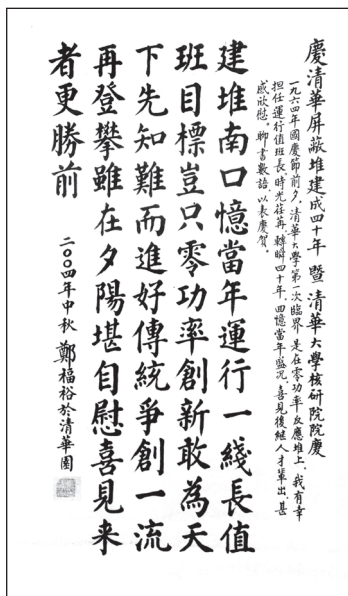 慶清華屏蔽堆建成四十年暨清華大學核研院院慶
一九六四年國慶節前夕，清華大學第一次臨界，是在零功率反應堆上，我有幸
担任運行值班長，時光荏苒，轉瞬四十年，回憶當年盛況，喜見後繼人才輩出，甚
感欣慰。聊書數語，以表慶賀。
建堆南口憶當年運行一綫長值
班目標豈只零功率創新敢為天
下先知難而進好傳統爭創一流
再登攀雖在夕陽堪自慰喜見来
者更勝前
二〇〇四年中秋 鄭福裕於清華園